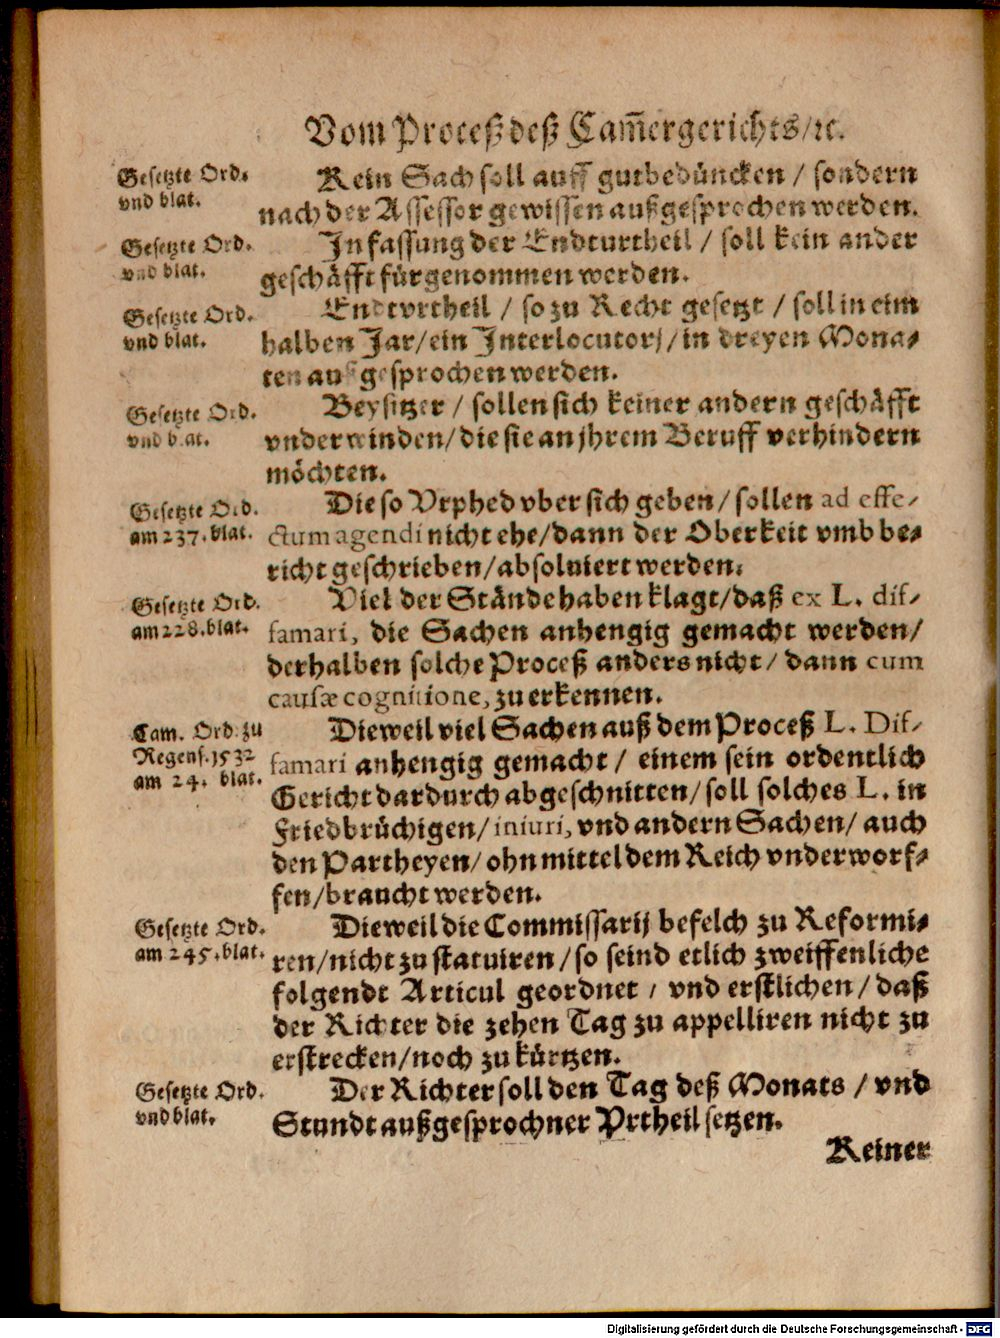 Vom Proceß deß Cam̄ergerichts/ꝛc.
Gesetzte Ord.
vnd blat.
Kein Sach soll auff gutbedüncken / sondern
nach der Assessor gewissen außgesprochen werden.
Gesetzte Ord.
vnd blat.
In fassung der Endturtheil / soll kein ander
geschäfft fürgenommen werden.
Gesetzte Ord.
vnd blat.
Endtvrtheil / so zu Recht gesetzt / soll in eim
halben Jar/ein Interlocutorj/in dreyen Mona-
ten außgesprochen werden.
Gesetzte Ord.
vnd blat.
Beysitzer / sollen sich keiner andern geschäfft
vnderwinden/die sie an jhrem Beruff verhindern
möchten.
Gesetzte Ord.
am 237. blat.
Die so Vrphed vber sich geben/sollen ad effe-
ctum agendi nicht ehe/dann der Oberkeit vmb be-
richt geschrieben/absoluiert werden.
Gesetzte Ord.
am 228. blat.
Viel der Stände haben klagt/daß ex L. dif-
famari, die Sachen anhengig gemacht werden/
derhalben solche Proceß anders nicht/ dann cum
causæ cognitione, zu erkennen.
Cam. Ord. zu
Regens. 1532
am 24. blat.
Dieweil viel Sachen auß dem Proceß L. Dif-
famari anhengig gemacht / einem sein ordentlich
Gericht dardurch abgeschnitten/soll solches L. in
Friedbrüchigen/iniuri, vnd andern Sachen/ auch
den Partheyen/ohn mittel dem Reich vnderworf-
fen/braucht werden.
Gesetzte Ord.
am 245. blat.
Dieweil die Commissarij befelch zu Reformi-
ren/nicht zu statuiren/so seind etlich zweiffenliche
folgendt Articul geordnet / vnd erstlichen/ daß
der Richter die zehen Tag zu appelliren nicht zu
erstrecken/noch zu kürtzen.
Gesetzte Ord.
vnd blat.
Der Richter soll den Tag deß Monats / vnd
Stundt außgesprochner Vrtheil setzen.
Keiner
Digitalisierung gefördert durch die Deutsche Forschungsgemeinschaft - DFG